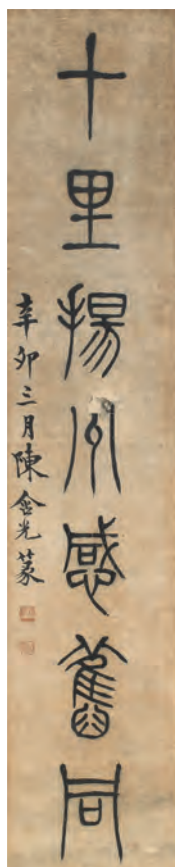 十里揚州感舊同
辛卯三月陳含光篆